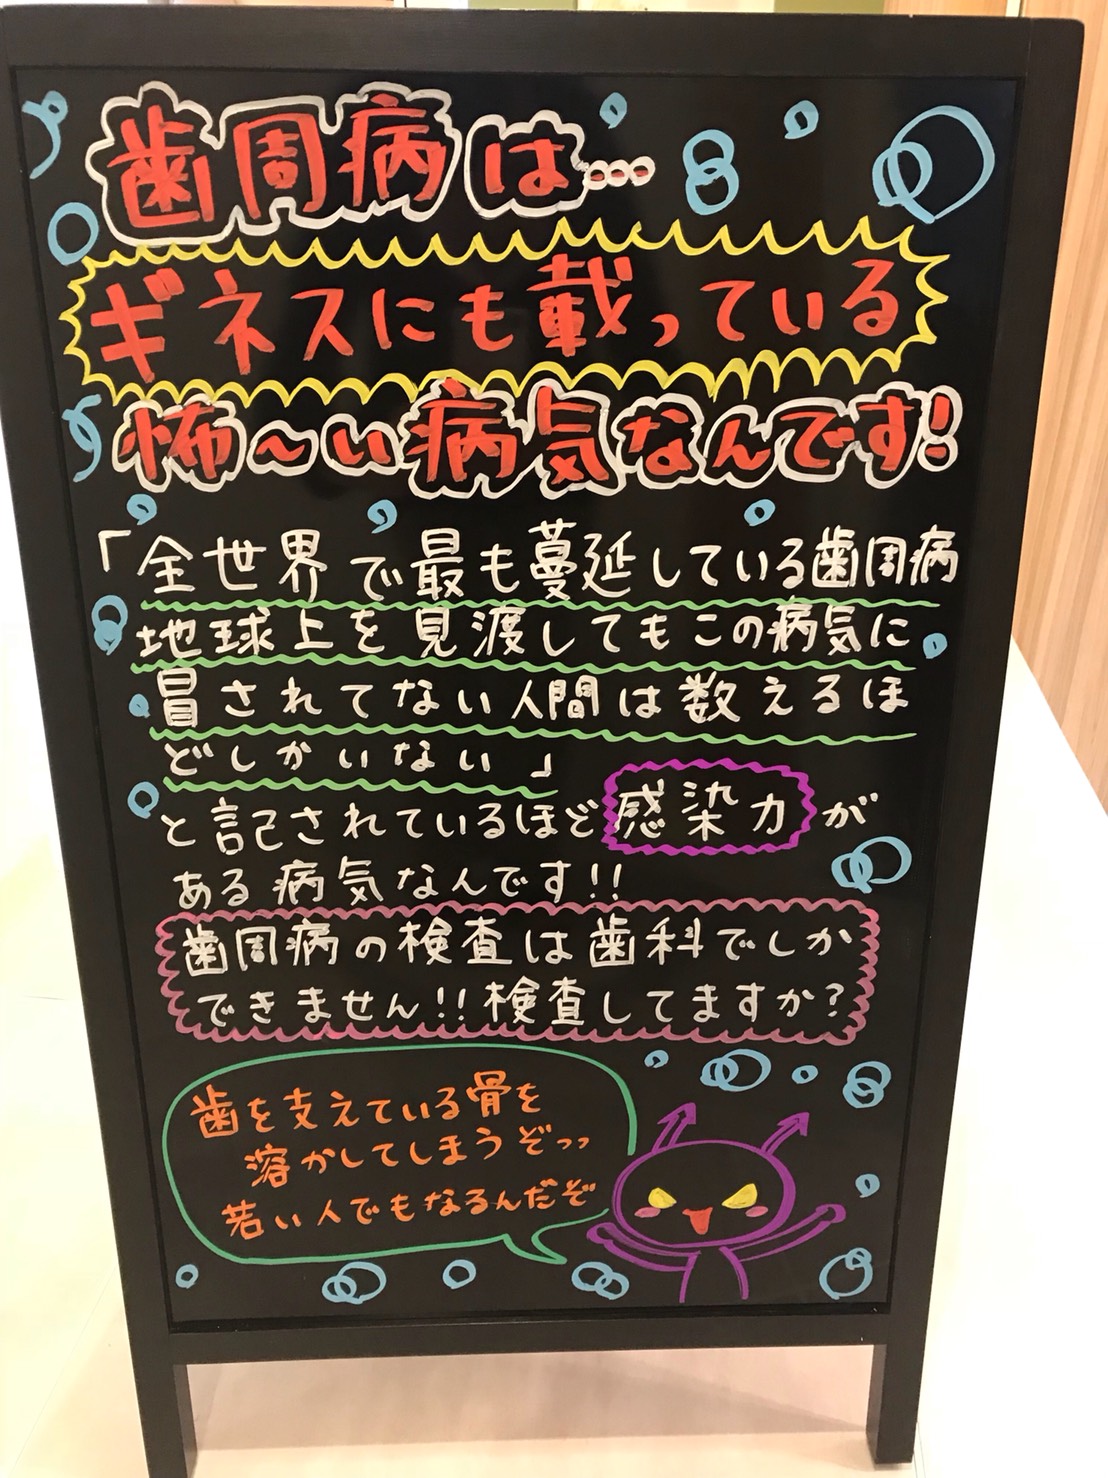 歯周病は…
ギネスにも載っている
怖～い病気なんです!
「全世界で最も蔓延している歯周病
地球上を見渡してもこの病気に
冒されてない人間は数えるほ
どしかいない」
と記されているほど感染力が
ある病気なんです!!
歯周病の検査は歯科でしか
できません!!検査してますか?
歯を支えている骨を
溶かしてしまうぞッッ
若い人でもなるんだぞ